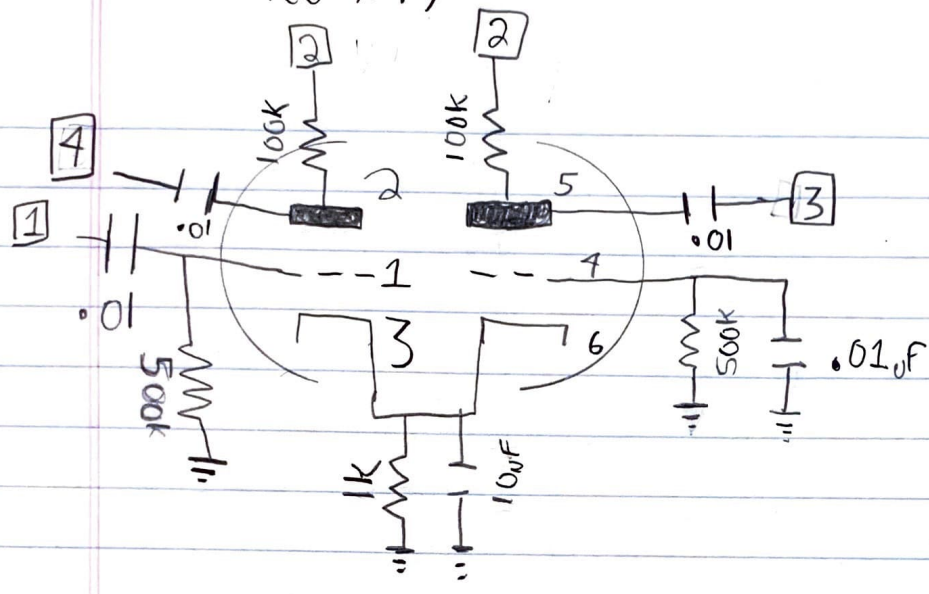 2
2
100K
100K
4
2
5
3
1
.01
.01
1
4
.01
3
6
500k
500k
.01uF
1k
10uF